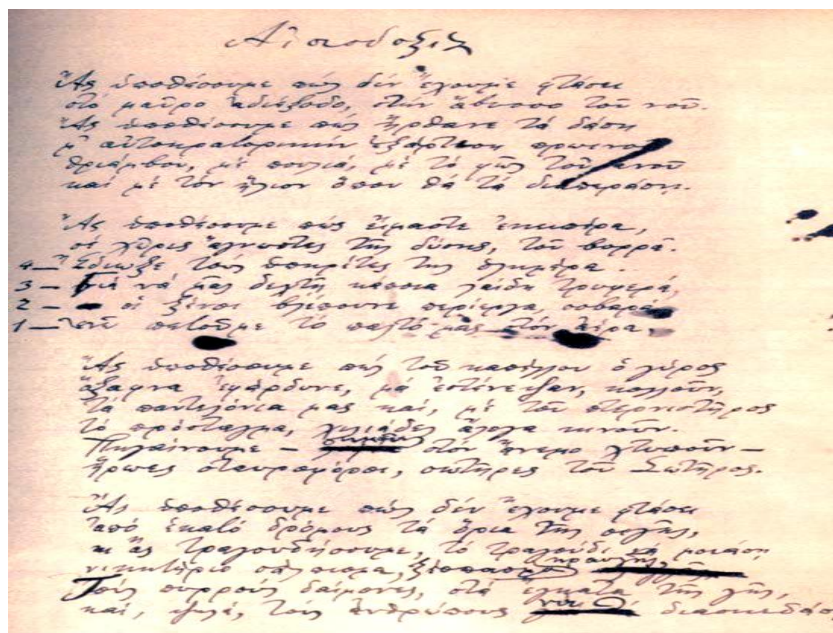 Αἰσιοδοξία
Ἂς ὑποθέσουμε πὼς δὲν ἔχουμε φτάσει
στὸ μαῦρο ἀδιέξοδο, στὴν ἄβυσσο τοῦ νοῦ.
Ἂς ὑποθέσουμε πὼς ἤρθανε τὰ δάση
μ' αὐτοκρατορικὴν ἐξάρτηση πρωινοῦ
θριάμβου, μὲ πουλιά, μὲ τὸ φῶς τοῦ
καὶ μὲ τὸν ἥλιον ὅπου θὰ τὰ διαπεράση.
Ἂς ὑποθέσουμε πὼς εἴμαστε ἐκεῖ πέρα,
σὲ χῶρες ἄγνωστες τῆς δύσης, τοῦ βορρᾶ.
4 — Ἔδιωξε τοὺς ὑπηρέτες της ὁλημέρα.
3 — Γιὰ νὰ μᾶς δεχτῆ κάποια λαίδη τρυφερά,
2 — οἱ ξένοι βλέπουνε περίεργα, σοβαρά
1 — πετοῦμε τὸ παλτό μας στὸν ἀέρα,
Ἂς ὑποθέσουμε πὼς τοῦ καπέλλου ὁ γύρος
ἄξαφνα ἐφάρδυνε, μὰ ἐστένεψαν, κολλοῦν,
τὰ παντελόνια μας καί, μὲ τοῦ πτερνιστῆρος
τὸ πρόσταγμα, χιλιάδες ἄλογα κινοῦν.
Πηγαίνουμε — στὸν ἄνεμο χτυποῦν —
ἥρωες σταυροφόροι, σωτῆρες τοῦ Σωτῆρος.
Ἂς ὑποθέσουμε πὼς δὲν ἔχουμε φτάσει
ἀπὸ ἑκατὸ δρόμους τὰ ὅρια τῆς σιγῆς,
κι ἂς τραγουδήσουμε, τὸ τραγούδι νὰ μοιάση
νικητήριο σάλπισμα, ξέσπασμα κραυγῆς
Τοὺς πυρροὺς δαίμονες, στὰ ἔγκατα τῆς γῆς,
καί, ψηλά, τοὺς ἀνθρώπους νὰ διασκεδάση